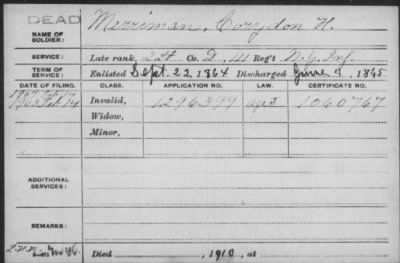 DEAD
NAME OF SOLDIER: Merriman, Corydon H.
SERVICE: Late rank, Co. D, Reg't N. J. Inf.
TERM OF SERVICE: Enlisted Sept. 22, 1864 Discharged June 1865
DATE OF FILING. CLASS. APPLICATION NO. LAW. CERTIFICATE NO.
Invalid, 1296399 1060767
Widow,
Minor,
ADDITIONAL SERVICES:
REMARKS:
Died , 1910, at